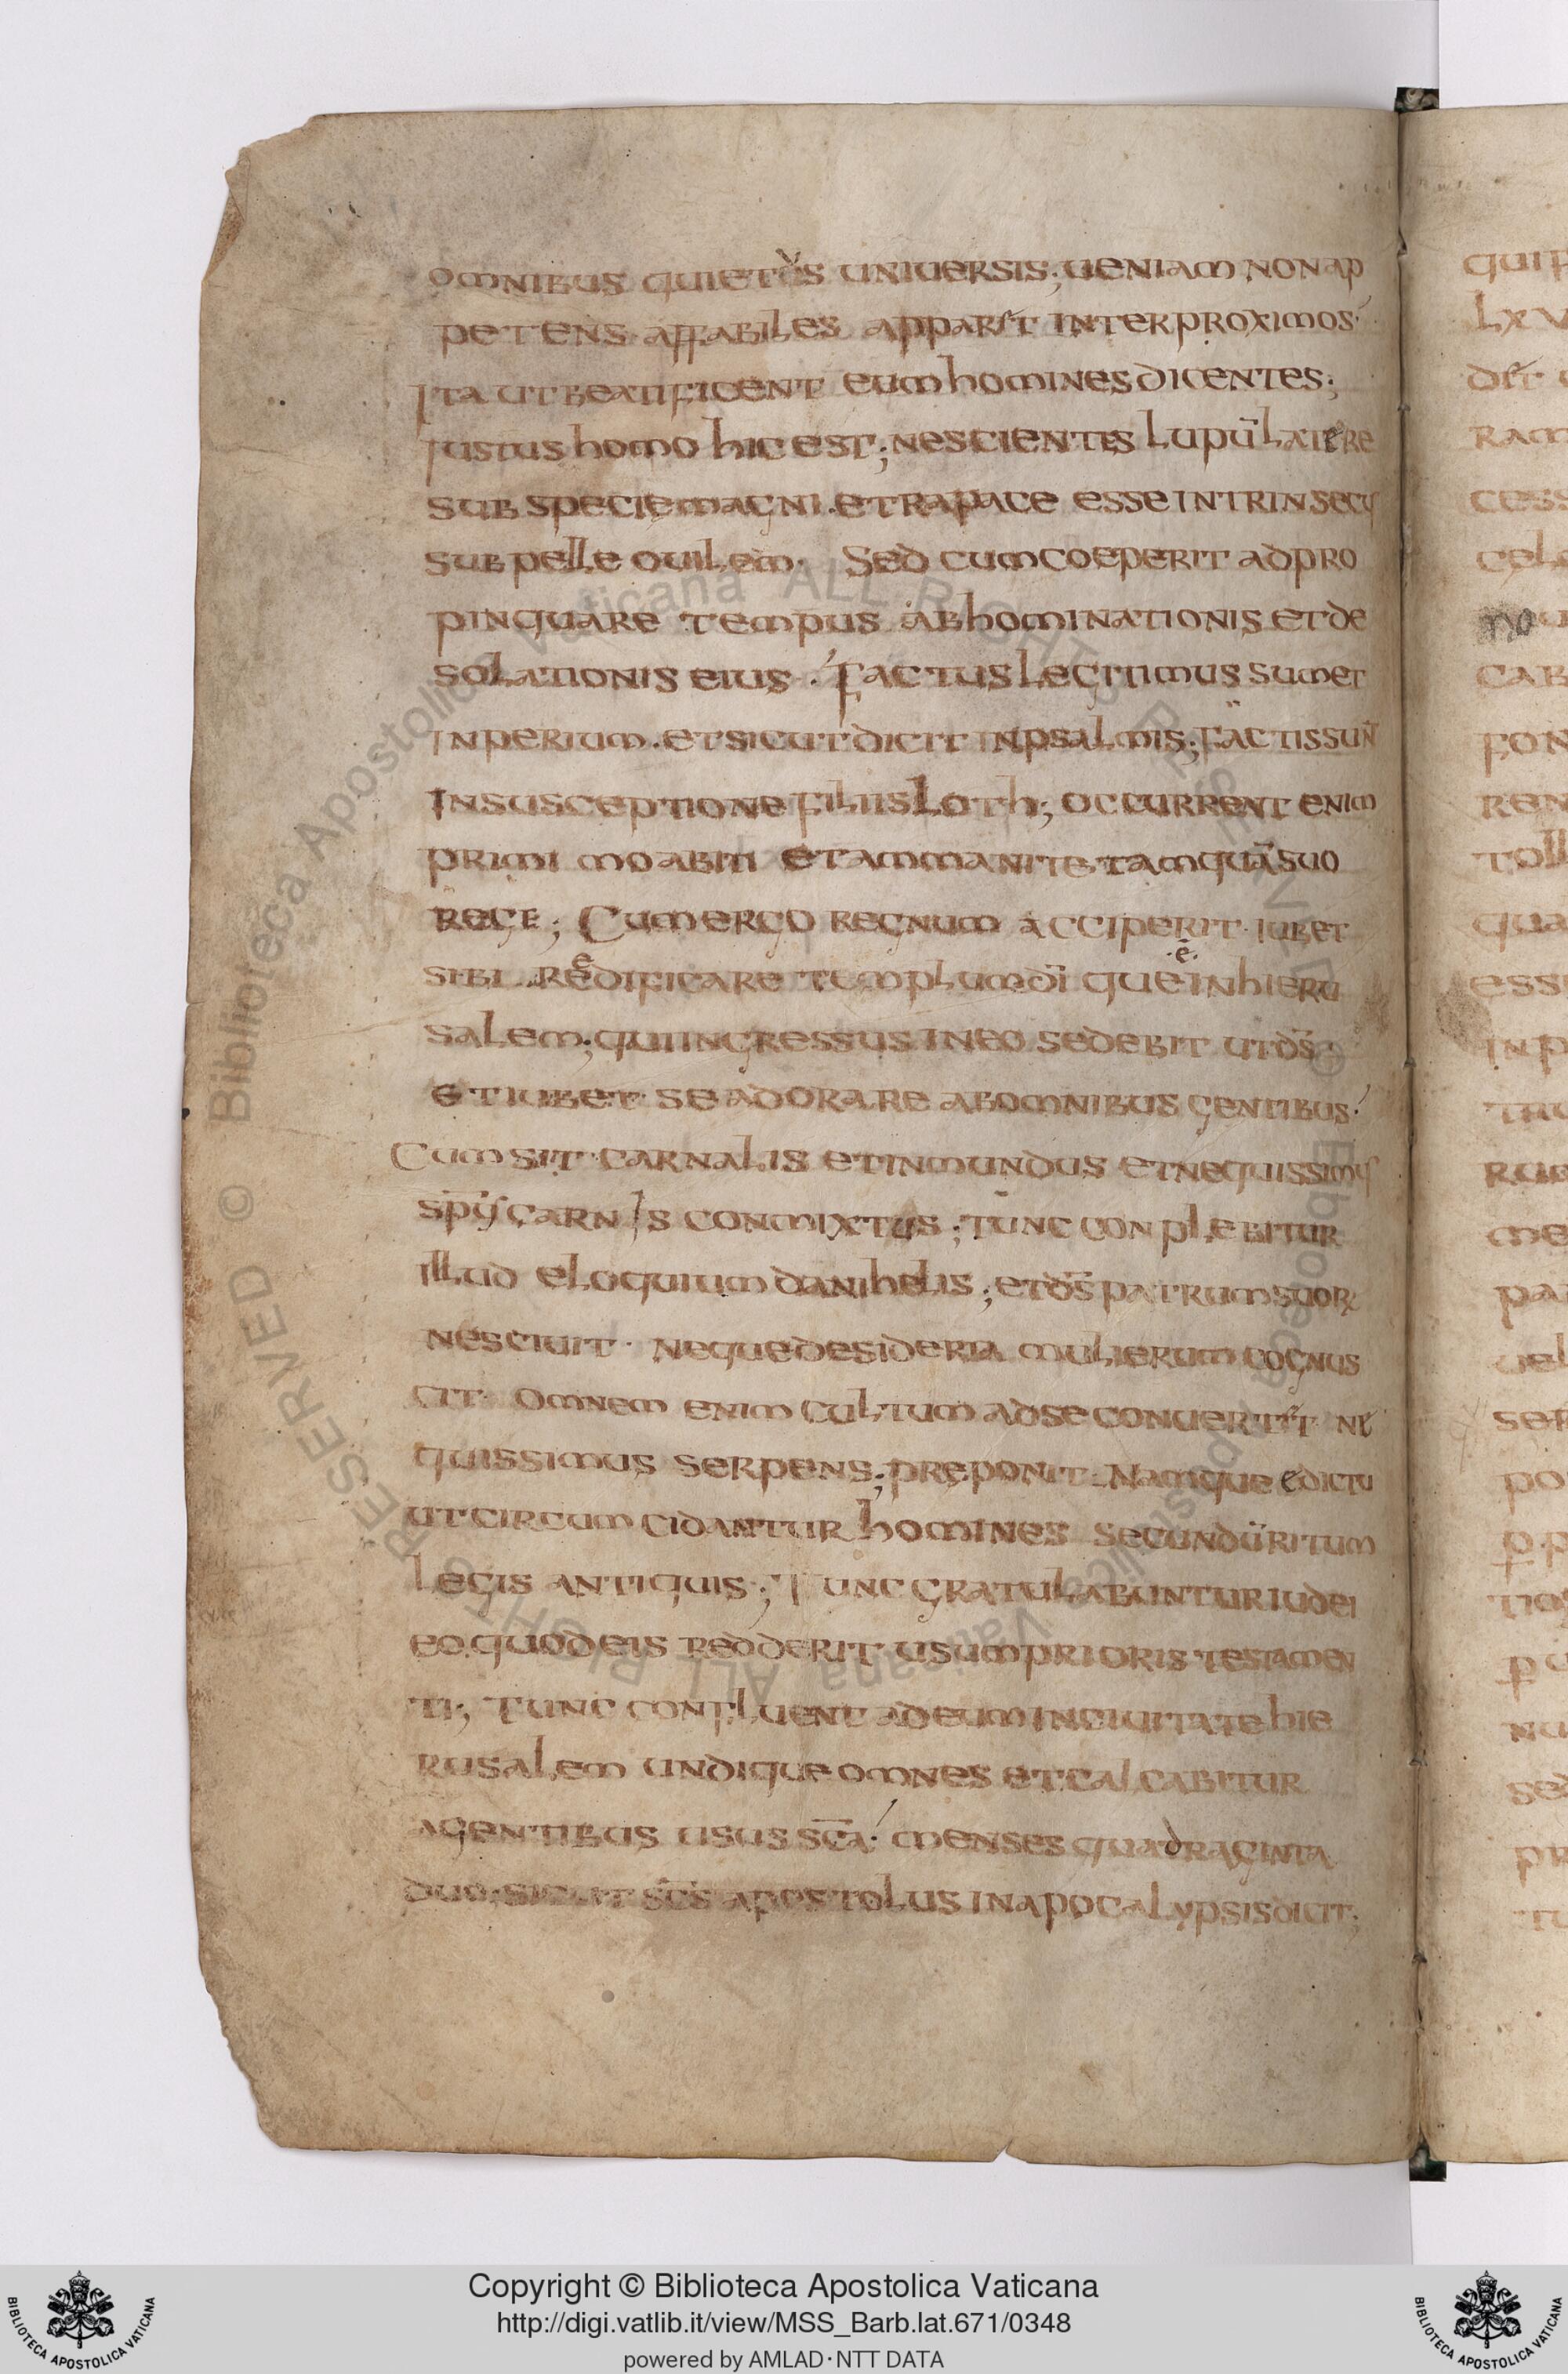 omnibus quietos uniuersis; ueniam non ap
petens affabiles apparet inter proximos
Ita ut beatificent eum homines dicentes;
Iustus homo hic est; nescientes lupū latere
sub specie magni et rapace esse intrinsecus
sub pelle ouilem. Sed cum coeperit adpro
pinquare tempus abhominationis et de
solationis eius. Factus legitimus sumet
inperium. et sicut dicit in psalmis; facti sunt
in susceptione filiis Loth; occurrent enim
primi moabiti et ammanite tamquā suo
rege; Cum ergo regnum acciperit iubet
sibi reedificare templum dī que ē in hieru
salem; qui ingressus in eo sedebit ut ds̄
et iubet se adorare ab omnibus gentibus.
Cum sit carnalis et inmundus et nequissimus
sp̄us carnis conmixtus; tunc conplebitur
illud eloquium danihelis; et ds̄ patrum suorum
nesciuit. neque desideria mulierum cognus
cit. Omnem enim cultum ad se conuertit ne
quissimus serpens; preponit. Namque edictū
ut circumcidantur homines secundū ritum
legis antiquis; Tunc gratulabuntur iudei
eo quod eis redderit usum prioris testamen
ti; Tunc confluent ad eum in ciuitate hie
rusalem undique omnes et calcabitur
agentibus usus sc̄a. menses quadraginta
duo; sicut sc̄s apostolus in apocalypsis dicit;
Copyright © Biblioteca Apostolica Vaticana
http://digi.vatlib.it/view/MSS_Barb.lat.671/0348
powered by AMLAD·NTT DATA